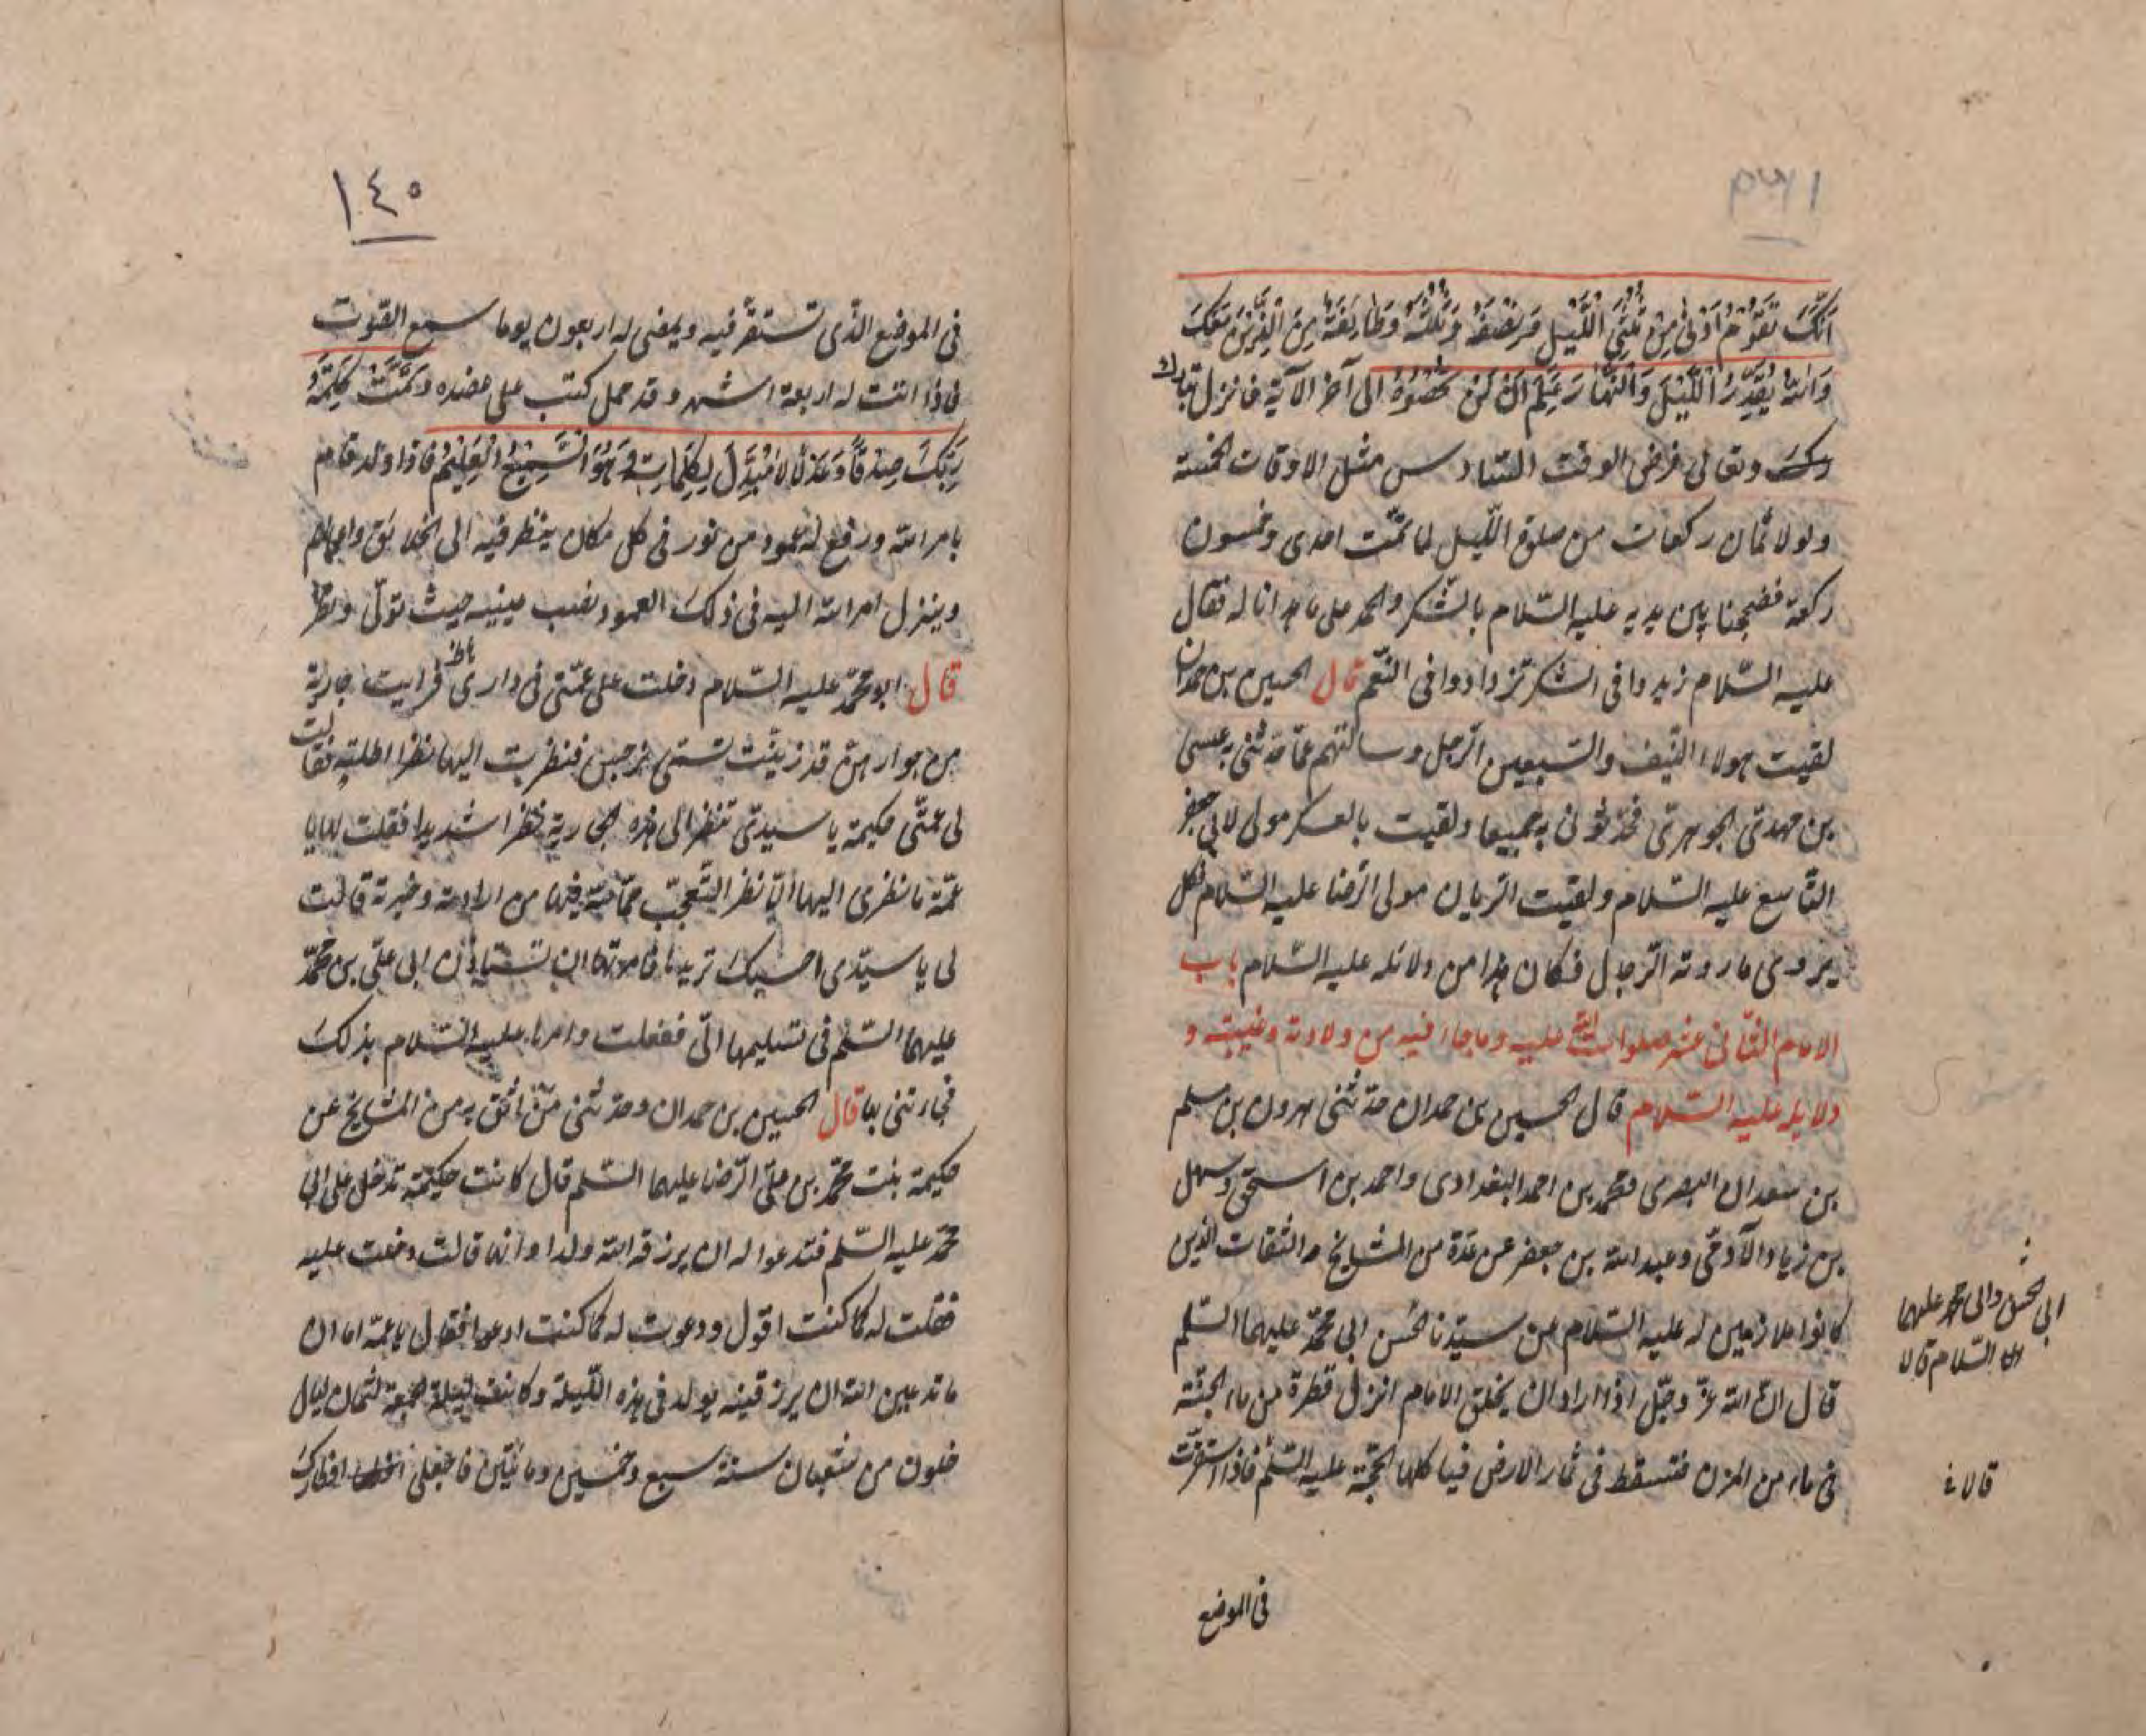 انك تقوم ادنى من ثلثي الليل ونصفه وثلثه وطائفة من الذين معك
والله يقدر الليل والنهار علم ان لن تحصوه الى آخر الآية فانزل تبا
رك وتعالى فرض الوقت السادس مثل الاوقات الخمسة
ولولا ثمان ركعات من صلوة الليل لما تمت احدى وخمسون
ركعة فضججنا بين يديه عليه السلام بالشكر والحمد على ما هدانا له فقال
عليه السلام زيدوا في الشكر تزدادوا في النعم قال الحسين بن حمدان
لقيت هولاء النيف والسبعين الرجل وسالتهم عما حدثني به عيسى
بن مهدي الجوهري فحدثوني به جميعا ولقيت بالعسكر مولى لابي جعفر
التاسع عليه السلام ولقيت الريان مولى الرضا عليه السلام فكل
يروى ما روته الرجال فكان هذا من دلائله عليه السلام باب
الامام الثاني عشر صلوات الله عليه وما جاء فيه من ولادته وغيبته و
دلايله عليه السلام قال الحسين بن حمدان حدثني هرون بن مسلم
بن سعدان البصرى ومحمد بن احمد البغدادى واحمد بن اسحق وسهل
بن زياد الآدمي وعبد الله بن جعفر عن عدة من المشايخ والثقات الذين
كانوا ملازمين له عليه السلام عن سيدنا الحسن ابى محمد عليهما السلم
ابى الحسن والى محمد عليهما
السلام قالا
قال ان الله عز وجل اذا اراد ان يخلق الامام انزل قطرة من ماء الجنة
في ماء من المزن فتسقط في ثمار الارض فياكلها الحجة عليه السلم فاذا استقرت
قالا
في الموضع
١٤٥
في الموضع الذى تستقر فيه ويمضى له اربعون يوما سمع الصوت
فاذا اتت له اربعة اشهر وقد حمل كتب على عضده وتمت كلمة
ربك صدقا وعدلا لا مبدل لكلماته وهو السميع العليم فاذا ولد قام
بامر الله ورفع له عمود من نور في كل مكان ينظر فيه الى الخلايق واعمالهم
وينزل امر الله اليه في ذلك العمود ونصب عينيه حيث تولى ونظر
قال ابو محمد عليه السلام دخلت على عمتي في دارى فرايت جارية
من جوارهن قد زينت تسمى نرجس فنظرت اليها نظرا اطلته فقالت
لى عمتي حكيمة يا سيدى تنظر الى هذه الجارية نظرا شديدا فقلت لها يا
عمة ما نظرى اليها الا نظر التعجب مما لله فيها من ارادته وخيرته قالت
لى يا سيدى احسبك تريدها فامرتها ان تستاذن ابى على بن محمد
عليهما السلم في تسليمها الى ففعلت وامرها عليه السلام بذلك
فجاءتني بها قال الحسين بن حمدان وحدثني من اثق به من المشايخ عن
حكيمة بنت محمد بن على الرضا عليهما السلم قال كانت حكيمة تدخل على ابى
محمد عليه السلم فتدعو له ان يرزقه الله ولدا وانها قالت دخلت عليه
فقلت له كما كنت اقول ودعوت له كما كنت ادعو فقال يا عمة اما ان
ما تدعين الله ان يرزقنيه يولد في هذه الليلة وكانت ليلة الجمعة لثمان ليال
خلون من شعبان سنة سبع وخمسين وماتين فاجعلى افطارك